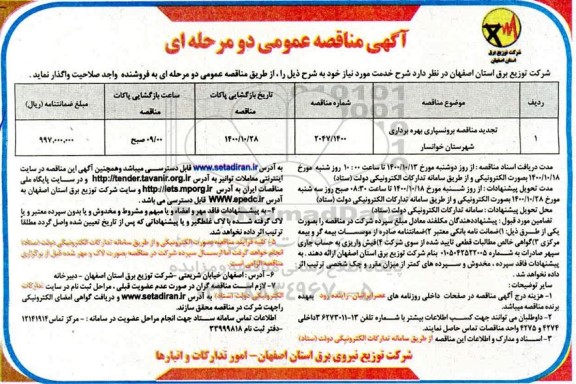 آگهی مناقصه عمومی دو مرحله ای
شرکت توزیع برق
استان اصفهان
شرکت توزیع برق استان اصفهان در نظر دارد شرح خدمت مورد نیاز خود به شرح ذیل را ، از طریق مناقصه عمومی دو مرحله ای به فروشنده واجد صلاحیت واگذار نماید .
ردیف موضوع مناقصه شماره مناقصه تاریخ بازگشایی پاکات مناقصه ساعت بازگشایی پاکات مناقصه مبلغ ضمانتنامه (ریال)
۱ تجدید مناقصه برونسپاری بهره برداری شهرستان خوانسار ۲۰۴۷/۱۴۰۰ ۱۴۰۰/۱۰/۲۸ ۰۹/۰۰ صبح ۹۹۷,۰۰۰,۰۰۰
مدت دریافت اسناد مناقصه : از روز دوشنبه مورخ ۱۴۰۰/۱۰/۱۳ تا ساعت ۱۰:۰۰ روز شنبه مورخ
۱۴۰۰/۱۰/۱۸ بصورت الکترونیکی و از طریق سامانه تدارکات الکترونیکی دولت (ستاد)
مدت تحویل پیشنهادات : از روز شنبه مورخ ۱۴۰۰/۱۰/۱۸ تا ساعت ۰۸:۳۰ صبح روز سه شنبه
مورخ ۱۴۰۰/۱۰/۲۸ بصورت الکترونیکی و از طریق سامانه تدارکات الکترونیکی دولت (ستاد)
محل تحویل پیشنهادات : سامانه تدارکات الکترونیکی دولت (ستاد)
تضامین مورد قبول : پیشنهاددهندگان مکلفند معادل مبلغ سپرده شرکت در مناقصه را بصورت
یکی از طرق ذیل: ۱) ضمانت نامه بانکی معتبر ۲) ضمانتنامه صادره از موسسات بیمه گر و بیمه
مرکزی ۳) گواهی خالص مطالبات قطعی تایید شده از سوی شرکت ۴) فیش واریزی به حساب جاری
سپهر صادرات به شماره ۰۱۰۵۰۴۲۵۲۲۰۰۵ بنام شرکت توزیع برق استان اصفهان ارائه دهند . به
پیشنهادات فاقد سپرده ، مخدوش و سپرده های کمتر از میزان مقرر و چک شخصی ترتیب اثر
داده نخواهد شد.
سایر توضیحات :
۱- هزینه درج آگهی مناقصه در صفحات داخلی روزنامه های عصر ایرانیان، زاینده رود بعهده
برنده مناقصه میباشد.
۲- داوطلبان می توانند جهت کسب اطلاعات بیشتر با شماره تلفن ۱۳-۶۲۷۳۰۱۱ داخلی
۴۲۷۴ و ۴۲۷۵ واحد مناقصات تماس حاصل نمایند.
۳- اسناد و مدارک و اطلاعات این مناقصه از طریق سامانه تدارکات الکترونیکی دولت (ستاد)
به آدرس www.setadiran.ir قابل دسترسی میباشد وهمچنین آگهی این مناقصه در سایت
اینترنتی معاملات توانیر به آدرس http://tender.tavanir.org.ir و در سایت پایگاه ملی
مناقصات ایران به آدرس http://iets.mporg.ir و سایت شرکت توزیع برق استان اصفهان به
آدرس WWW.epedc.ir قابل دسترسی می باشد.
۴- به پیشنهادات فاقد مهر و امضاء و یا مبهم و مشروط و مخدوش و یا بدون سپرده معتبر و یا
لاک گرفته شده یا لاک غلطگیر و یا پیشنهاداتی که پس از تاریخ تعیین شده واصل گردد مطلقاً
ترتیب اثر داده نخواهد شد.
۵- کلیه فرایند مناقصه بصورت الکترونیکی و از طریق سامانه تدارکات الکترونیکی دولت (ستاد)
۶- آدرس: اصفهان خیابان شریعتی -شرکت توزیع برق استان اصفهان - دبیرخانه
۷- لازم است مناقصه گران در صورت عدم عضویت قبلی ، مراحل ثبت نام در سایت تدارکات
الکترونیکی دولت (ستاد) به آدرس www.setadiran.ir و دریافت گواهی امضای الکترونیکی
راجهت شرکت در مناقصه محقق سازند.
اطلاعات تماس سامانه ستاد جهت انجام مراحل عضویت در سامانه : - مرکز تماس ۱۲۱۴۱۹۱۴
-دفتر ثبت نام ۳۳۹۹۹۸۱۸
شرکت توزیع نیروی برق استان اصفهان- امور تدارکات و انبارها